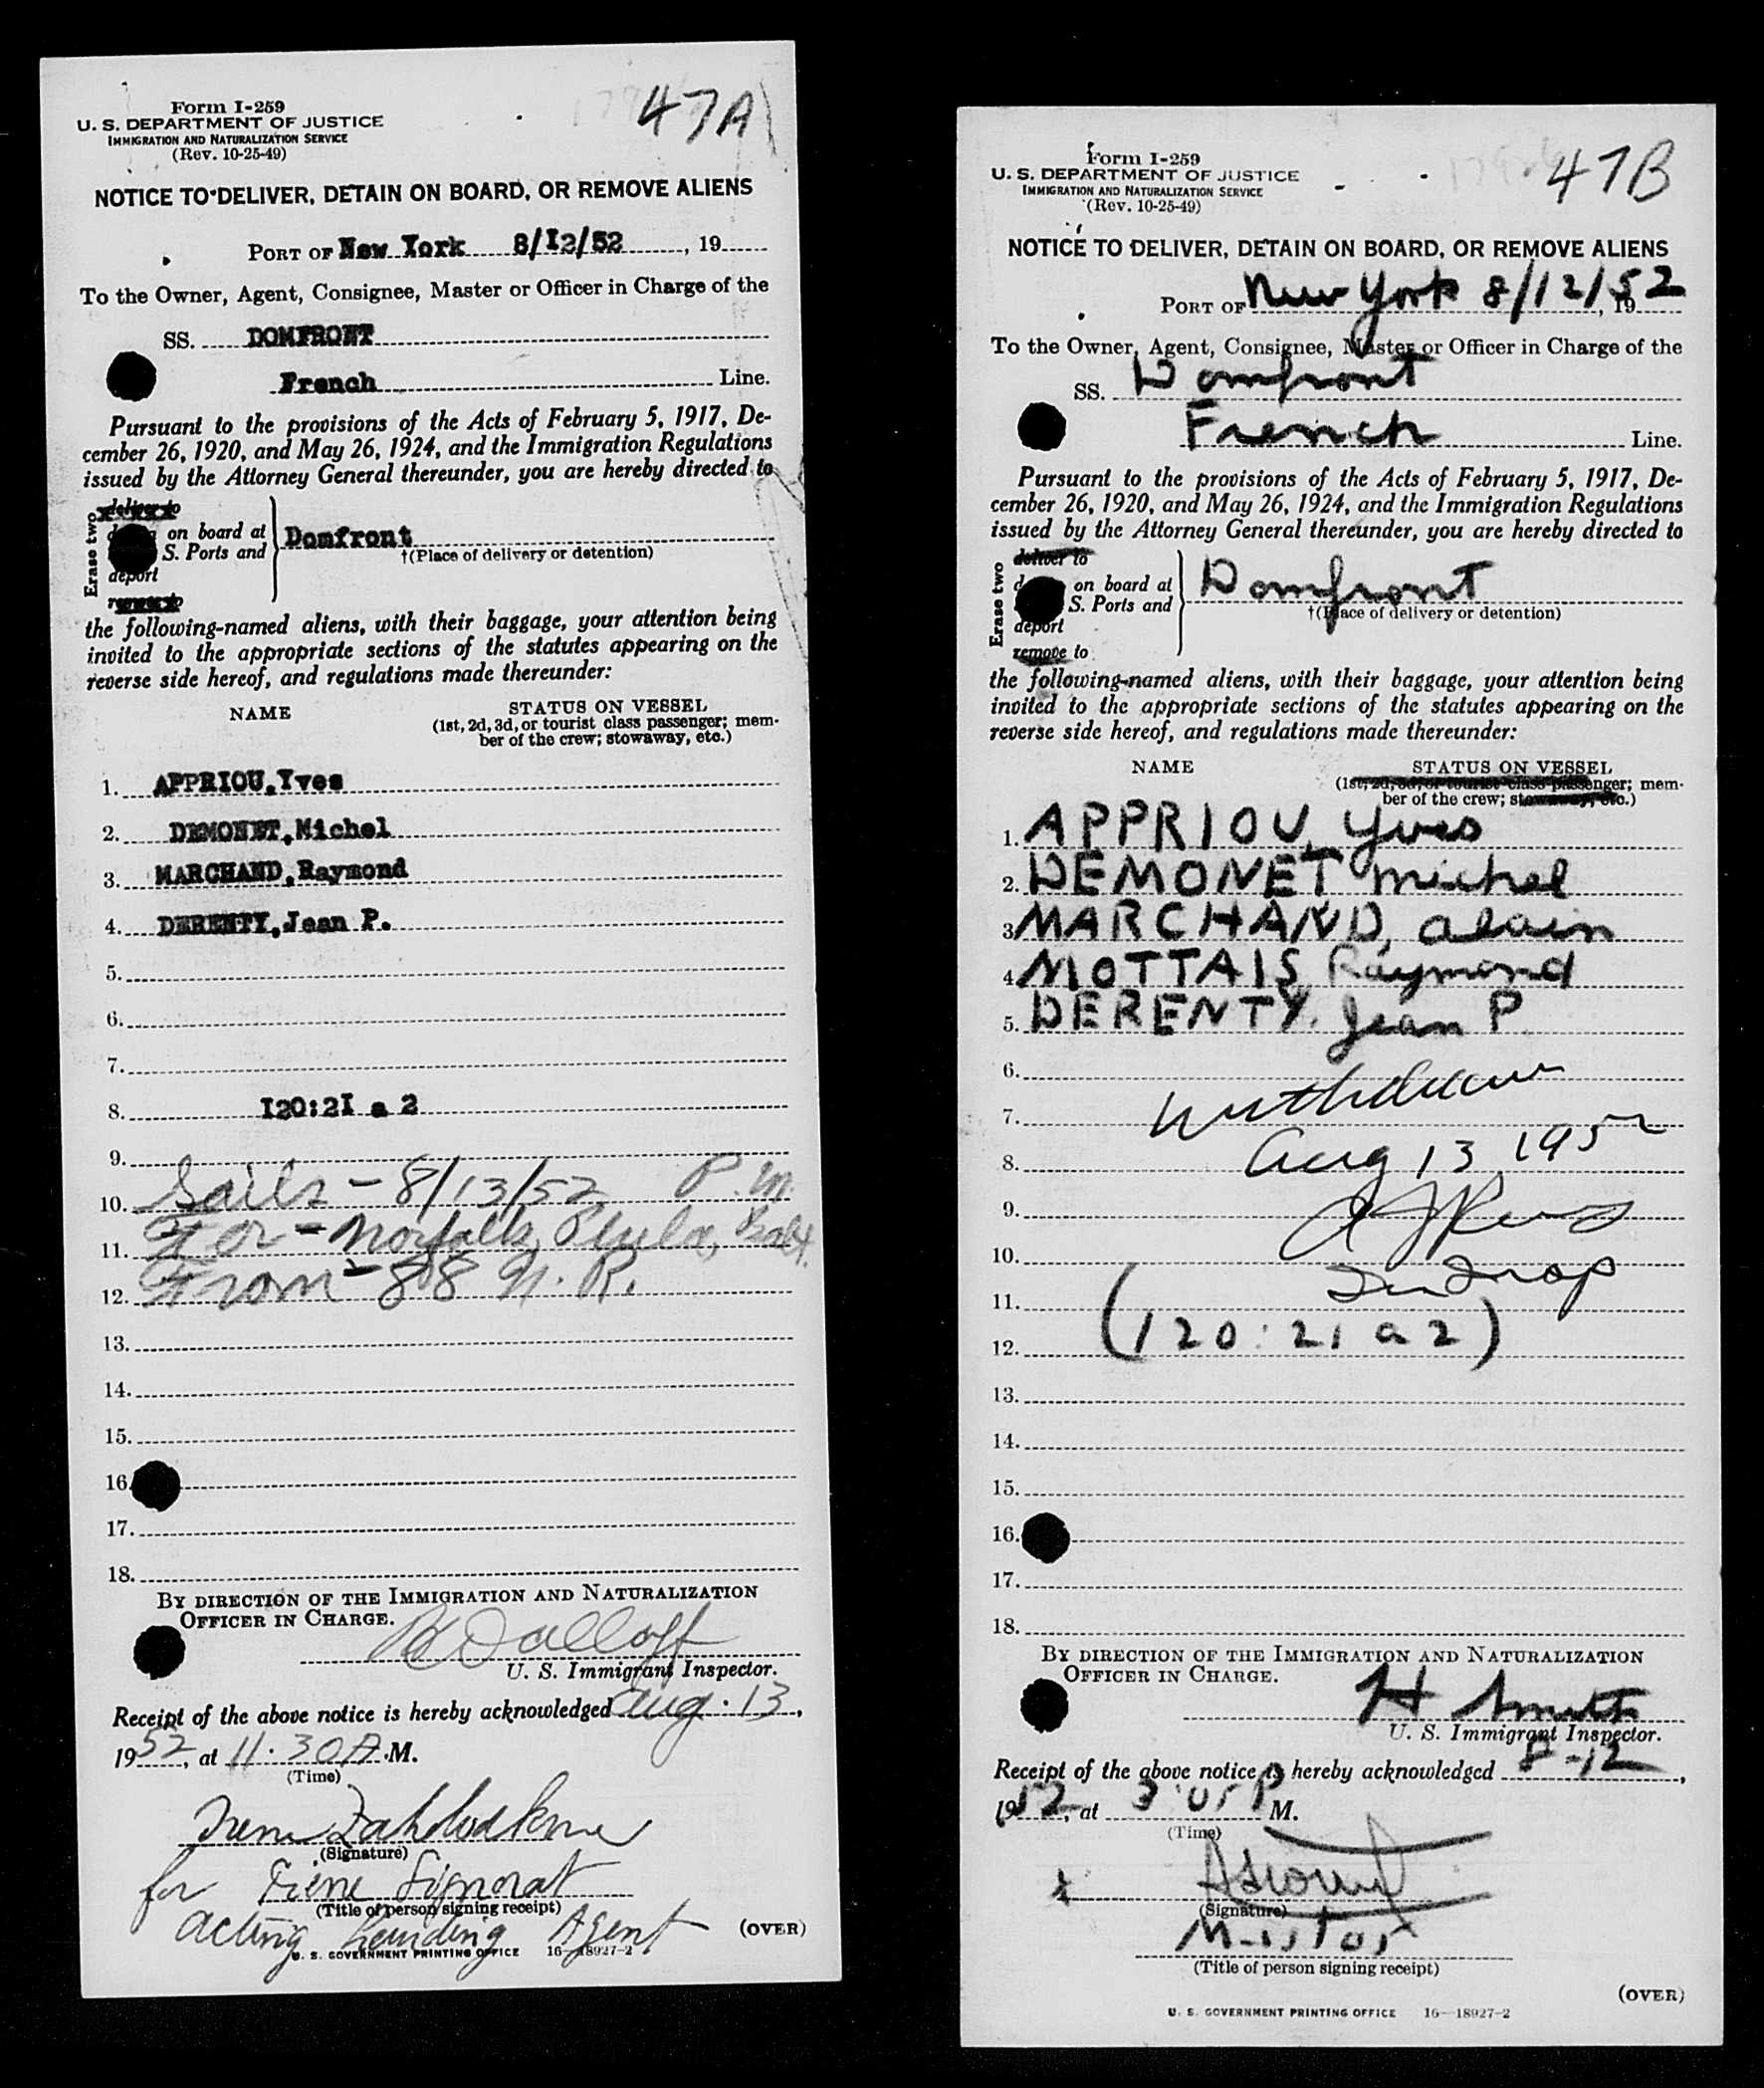 Form I-259
U. S. DEPARTMENT OF JUSTICE
IMMIGRATION AND NATURALIZATION SERVICE
(Rev. 10-25-49)
47A
NOTICE TO DELIVER, DETAIN ON BOARD, OR REMOVE ALIENS
PORT OF New York 8/I2/52, 19
To the Owner, Agent, Consignee, Master or Officer in Charge of the
SS. DOMFRONT
French Line.
Pursuant to the provisions of the Acts of February 5, 1917, De-
cember 26, 1920, and May 26, 1924, and the Immigration Regulations
issued by the Attorney General thereunder, you are hereby directed to
Erase two
deliver to
on board at
S. Ports and
deport
remove to
Domfront
†(Place of delivery or detention)
the following-named aliens, with their baggage, your attention being
invited to the appropriate sections of the statutes appearing on the
reverse side hereof, and regulations made thereunder:
NAME
STATUS ON VESSEL
(1st, 2d, 3d, or tourist class passenger; mem-
ber of the crew; stowaway, etc.)
1. APPRIOU,Yves
2. DEMONET,Michel
3. MARCHAND,Raymond
4. DERENTY,Jean P.
5.
6.
7.
8. I20:2I a 2
9.
10. Sails - 8/13/52 P.M.
11. For - Norfolk, Phila, Balt.
12. From - 88 N. R.
13.
14.
15.
16.
17.
18.
BY DIRECTION OF THE IMMIGRATION AND NATURALIZATION
OFFICER IN CHARGE.
U. S. Immigrant Inspector.
Receipt of the above notice is hereby acknowledged Aug. 13,
1952, at 11.30 A.M.
(Time)
Irene
(Signature)
for Irene Signorat
(Title of person signing receipt)
Acting Landing Agent
(OVER)
U. S. GOVERNMENT PRINTING OFFICE 16—18927-2
Form I-259
U. S. DEPARTMENT OF JUSTICE
IMMIGRATION AND NATURALIZATION SERVICE
(Rev. 10-25-49)
47B
NOTICE TO DELIVER, DETAIN ON BOARD, OR REMOVE ALIENS
PORT OF New York 8/12/52, 19
To the Owner, Agent, Consignee, Master or Officer in Charge of the
SS. Domfront
French Line.
Pursuant to the provisions of the Acts of February 5, 1917, De-
cember 26, 1920, and May 26, 1924, and the Immigration Regulations
issued by the Attorney General thereunder, you are hereby directed to
Erase two
deliver to
on board at
S. Ports and
deport
remove to
Domfront
†(Place of delivery or detention)
the following-named aliens, with their baggage, your attention being
invited to the appropriate sections of the statutes appearing on the
reverse side hereof, and regulations made thereunder:
NAME
STATUS ON VESSEL
(1st, 2d, 3d, or tourist class passenger; mem-
ber of the crew; stowaway, etc.)
1. APPRIOU, Yves
2. DEMONET Michel
3. MARCHAND, Alain
4. MOTTAIS, Raymond
5. DERENTY, Jean P.
6.
7. Withdrawn
8. Aug 13, 1952
9.
10.
11.
12. (120:21 a 2)
13.
14.
15.
16.
17.
18.
BY DIRECTION OF THE IMMIGRATION AND NATURALIZATION
OFFICER IN CHARGE.
H Smith
U. S. Immigrant Inspector.
Receipt of the above notice is hereby acknowledged 8-12,
1952, at 3:05 P M.
(Time)
(Signature)
Master
(Title of person signing receipt)
(OVER)
U. S. GOVERNMENT PRINTING OFFICE 16—18927-2